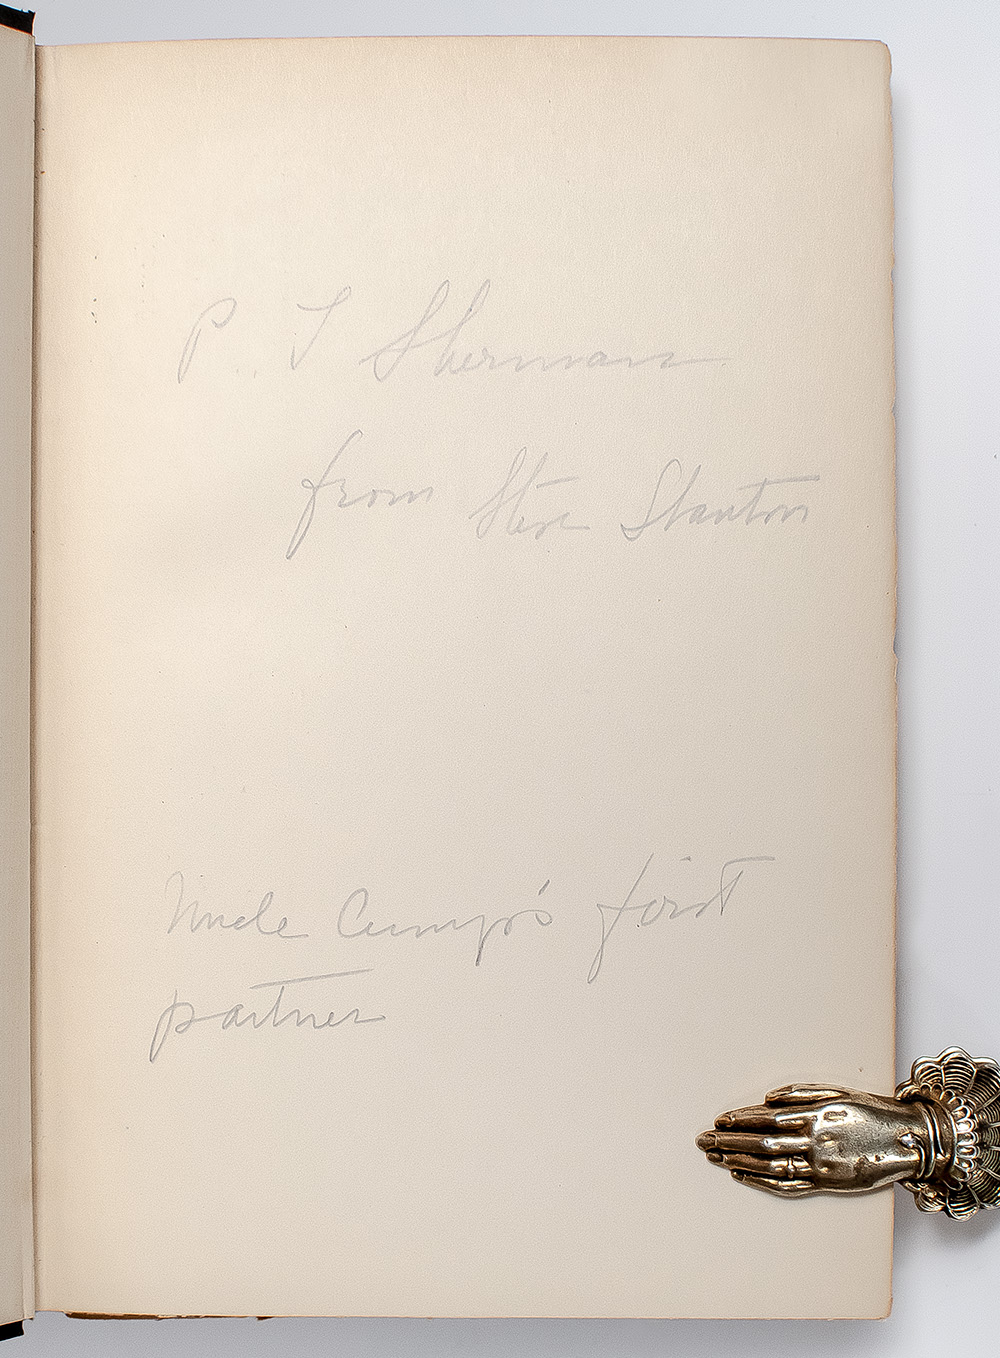 P. T Sherman
from Steve Stanton
Uncle Cump's first
partner